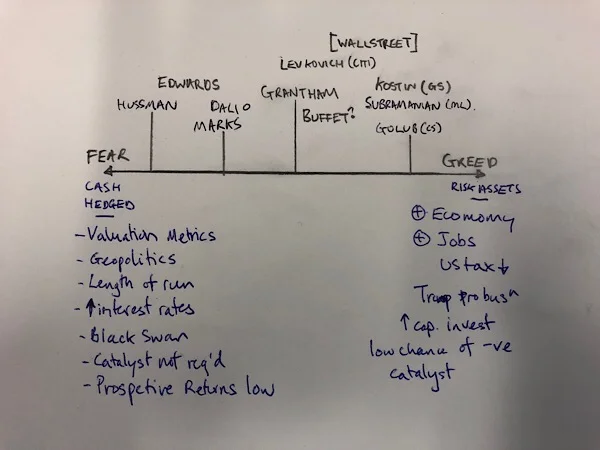 [WALLSTREET]
LEVKOVICH (CITI)
EDWARDS
HUSSMAN
DALIO
MARKS
GRANTHAM
BUFFET?
KOSTIN (GS)
SUBRAMANIAN (ML).
GOLUB (CS)
FEAR
GREED
CASH
HEDGED
- Valuation Metrics
- Geopolitics
- Length of run
- ↑ interest rates
- Black Swan
- Catalyst not req'd
- Prospetive Returns low
RISK ASSETS
⊕ Economy
⊕ Jobs
US tax ↓
Trump probusⁿ
↑ cap. invest
low chance of -ve
catalyst